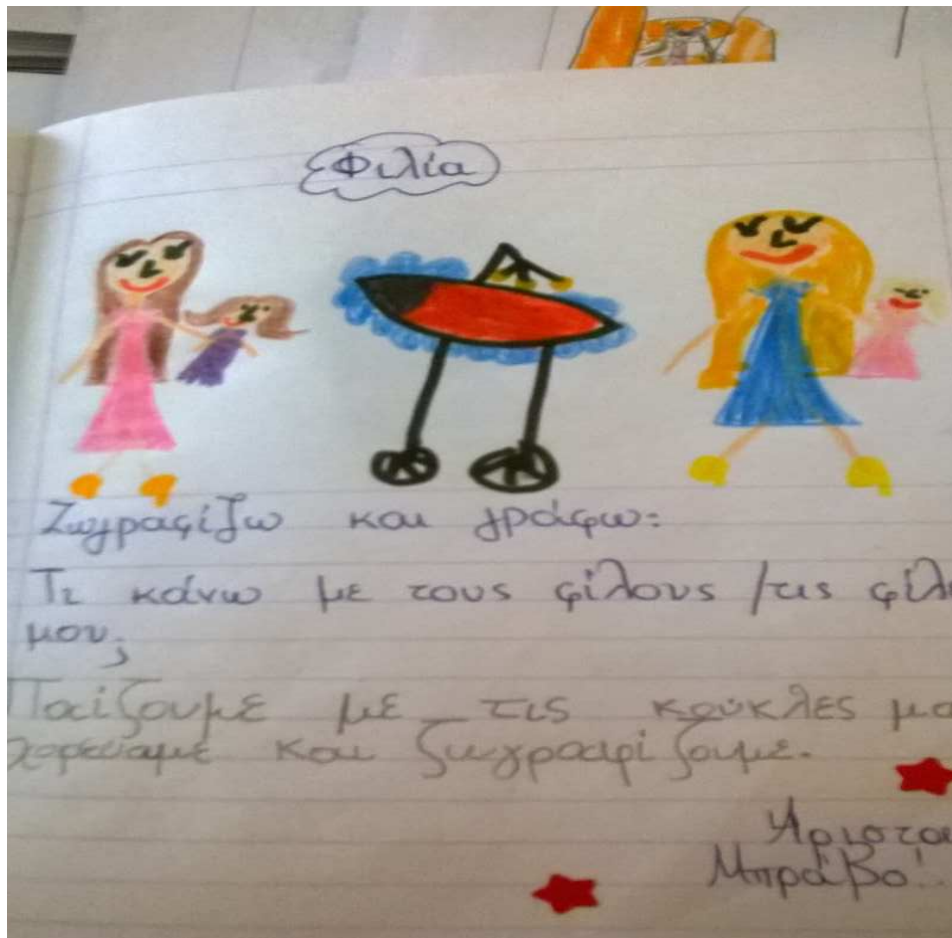 Φιλία
Ζωγραφίζω και γράφω:
Τι κάνω με τους φίλους /τις φίλε
μου;
Παίζουμε με τις κούκλες μα
χορεύαμε και ζωγραφίζουμε.
Άριστα
Μπράβο!